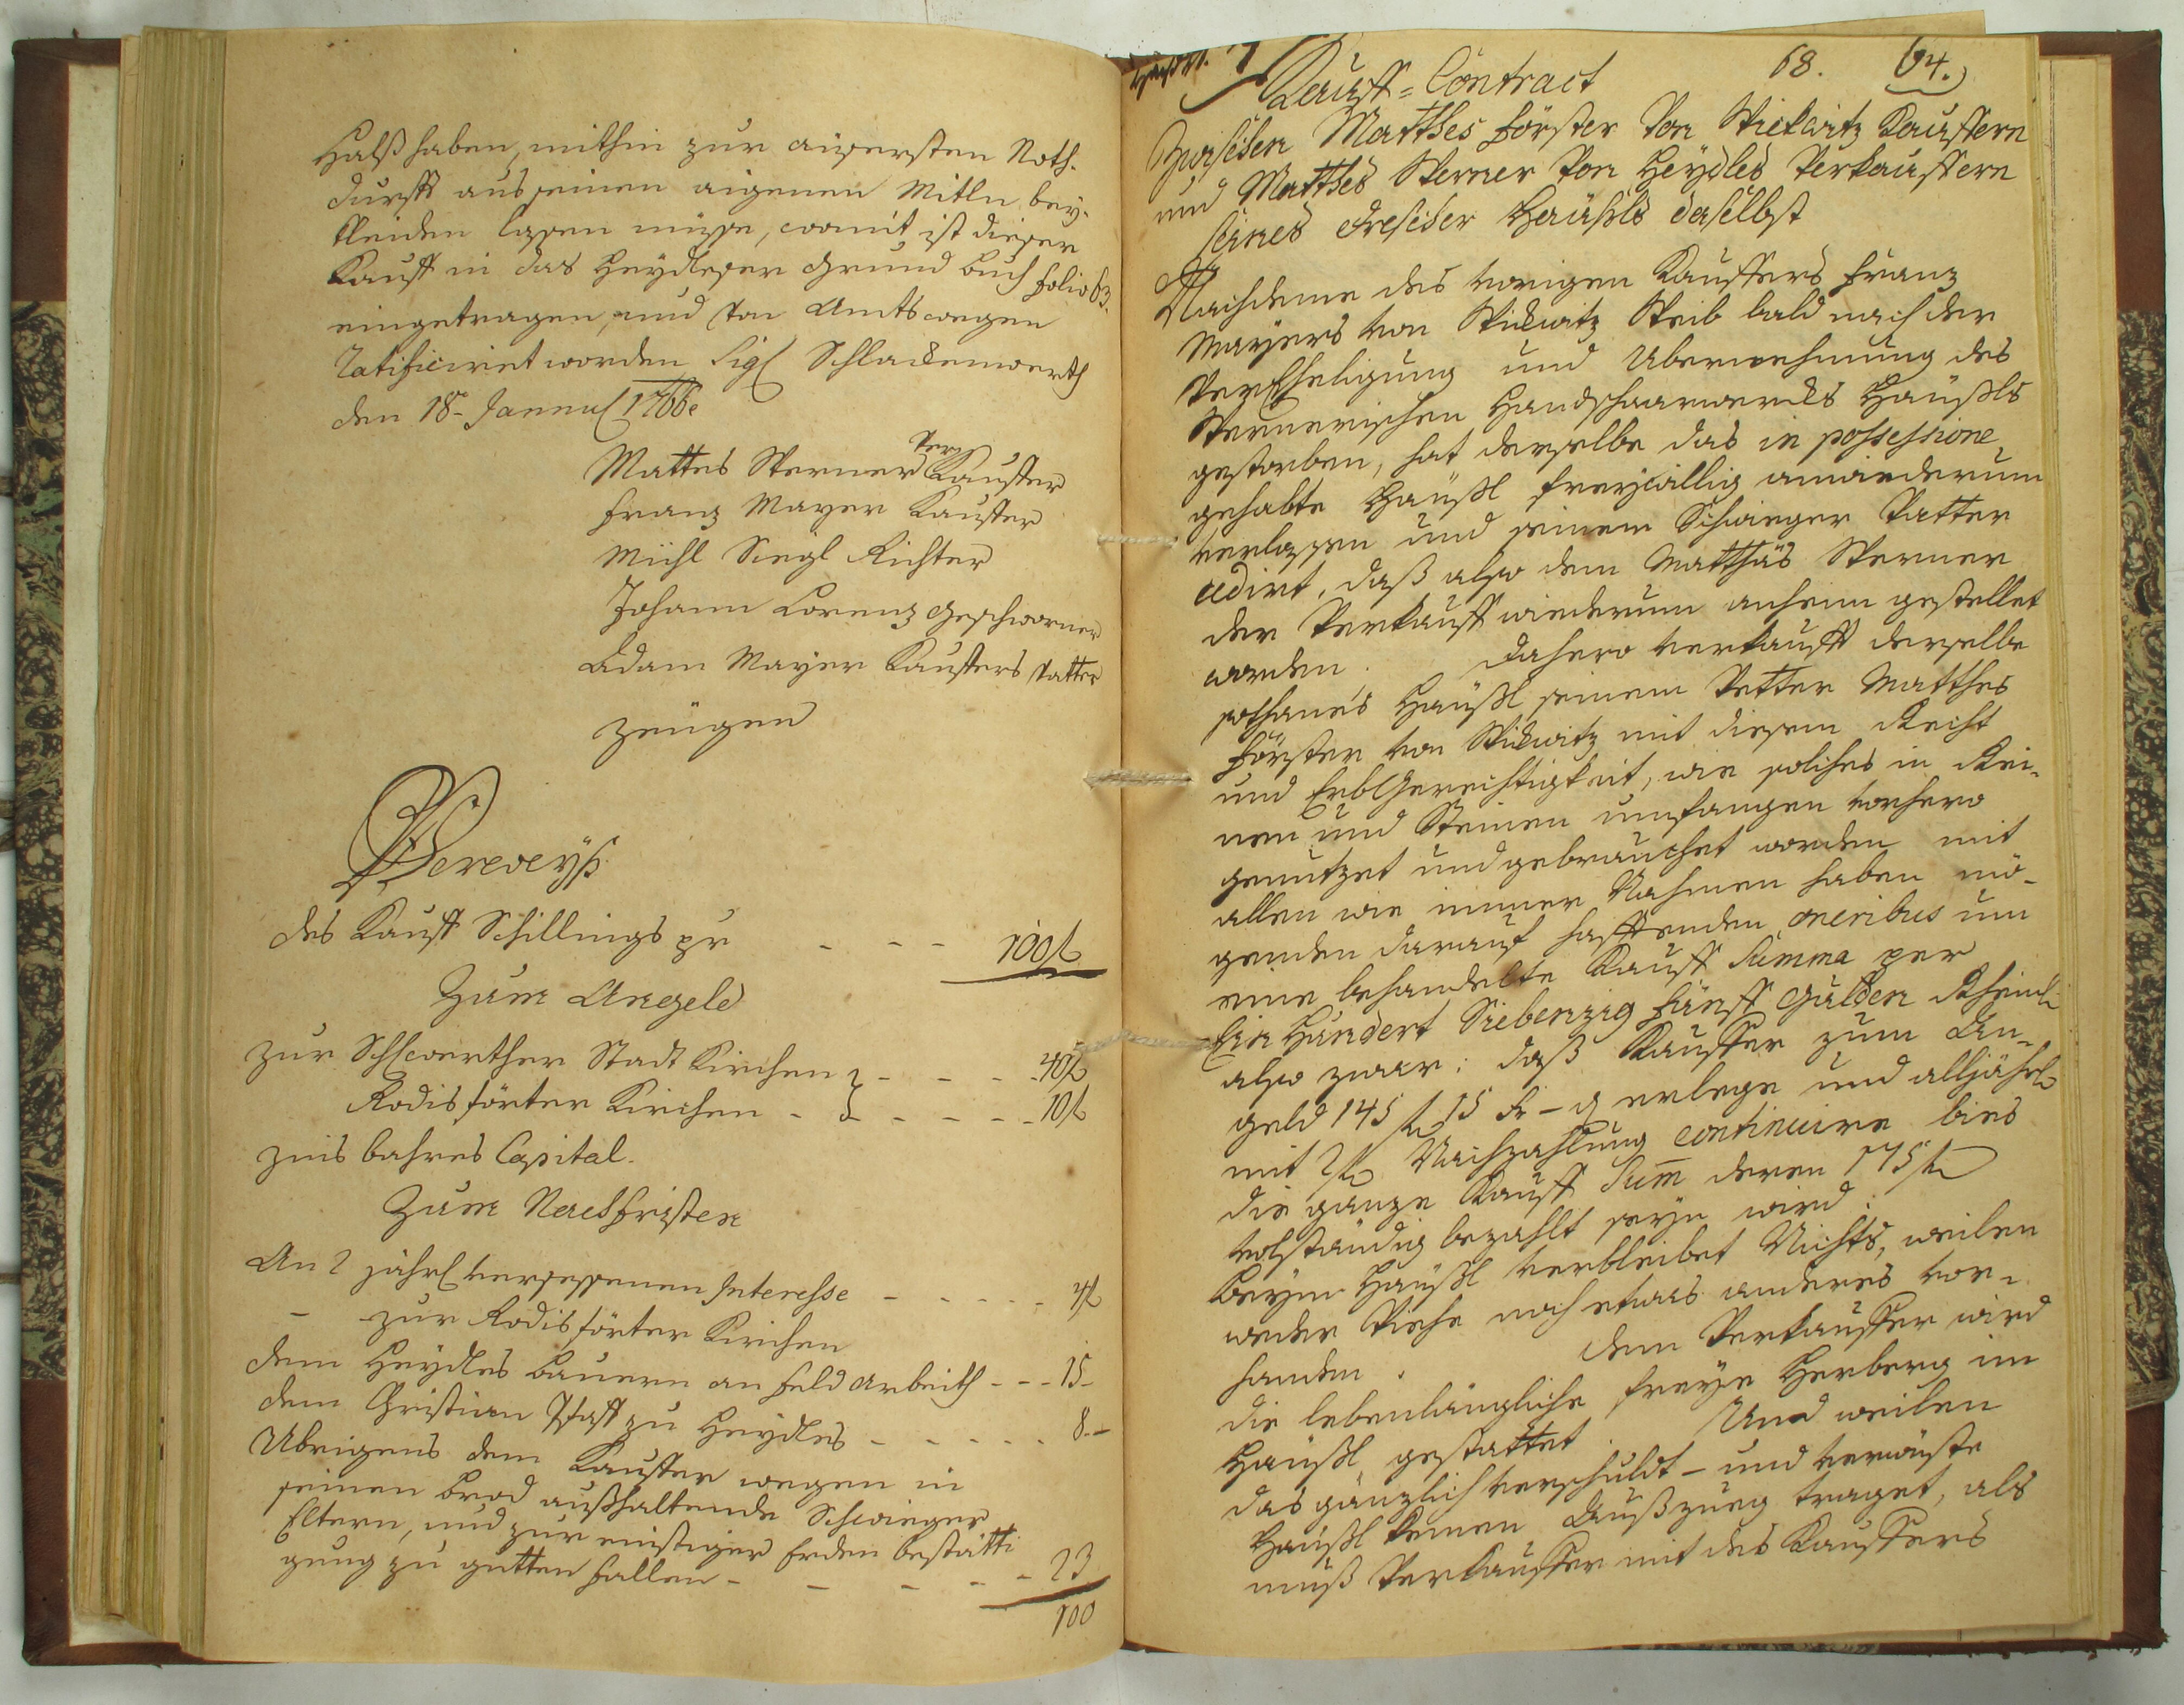 Halß haben, mithin zur äusersten Noth-
durfft aus seinen aigenen Mitln bey-
kleiden lasen müsse, womit ist dieser
Kauff in das Heydleser Grund Buch folio 63.
eingetragen, und von Amtswegen
ratificiret worden Sigl Schlackenwerth
den 18. Januarl 1766
Mattes Sterner Ver Kauffer
Franz Mayer Kauffer
Michl Siegl Richter
Johann Lorenz Geschworner
Adam Mayer Kauffers Vatter
Zeugen
Verweyß
des Kauff Schillings pr - - - 100 f
Zum Angeld
Zur Schlwerther Stadt Kirchen - - - - 40 f
Rodisforter Kirchen - - - - - 10 f
Zins bahres Capital.
Zum Nachfristen
An 2 jährl versessenen Interesse - - - - - 4 f
- zur Rodisforter Kirchen
dem Heydles Bauern an Feld Arbeith - - - 15 -
dem Christian zu Heydles - - - - - 8 -
Übrigens dem Kauffer wegen in
seinen Brod außhaltende Schwieger
Eltern, und zur einstiger Erden bestätti
gung zu gutten fallen - - - - - 23
100
68. 64.
Kauff-Contract
Zwischen Matthes Förster von Stickwitz Kauffern
und Matthes Sterner von Heydles Verkauffern
seines Drescher Häußls daselbst
Nachdeme des vorigen Kauffers Franz
Mayers von Stickwitz Weib bald nach der
Verehheligung und Übernehmung des
Sternerischen Handschaarwercks Häußls
gestorben, hat derselbe das in possessione
gehabte Häußl freywillig anwiederum
verlassen und seinem Schwieger Vatter
cedirt, daß also dem Matthäs Sterner
der Verkauff wiederum anheim gestellet
worden. Dahero verkaufft derselbe
sothanes Häußl seinem Vetter Matthes
Förster von Stickwitz mit diesem Recht
und Erbgerechtigkeit, wie solches in Rei-
nen und Steinen umfangen vorhero
genutzet und gebrauchet worden mit
allen wie immer Nahmen haben mö-
genden darauf hafftenden oneribus um
eine behandelte Kauff Summa per
Ein Hundert Siebenzig fünff Gulden Rheinl
also zwar: daß Kauffer zum An-
geld 145 f 15 kr - d erlege und alljährl
mit 2 f Nachzahlung continuire bies
die ganze Kauff Sum̄ deren 175 f
volständig bezahlt seyn wird.
Beym Häußl verbleibet Nichts, weilen
weder Viehe noch etwas anderes vor-
handen. Dem Verkauffer wird
die lebenlängliche freye Herberg im
Häußl gestattet. Und weilen
das gänzlich verschuldt- und verwüste
Häußl keinen Außzueg traget, als
muß Verkauffer mit des Kauffers